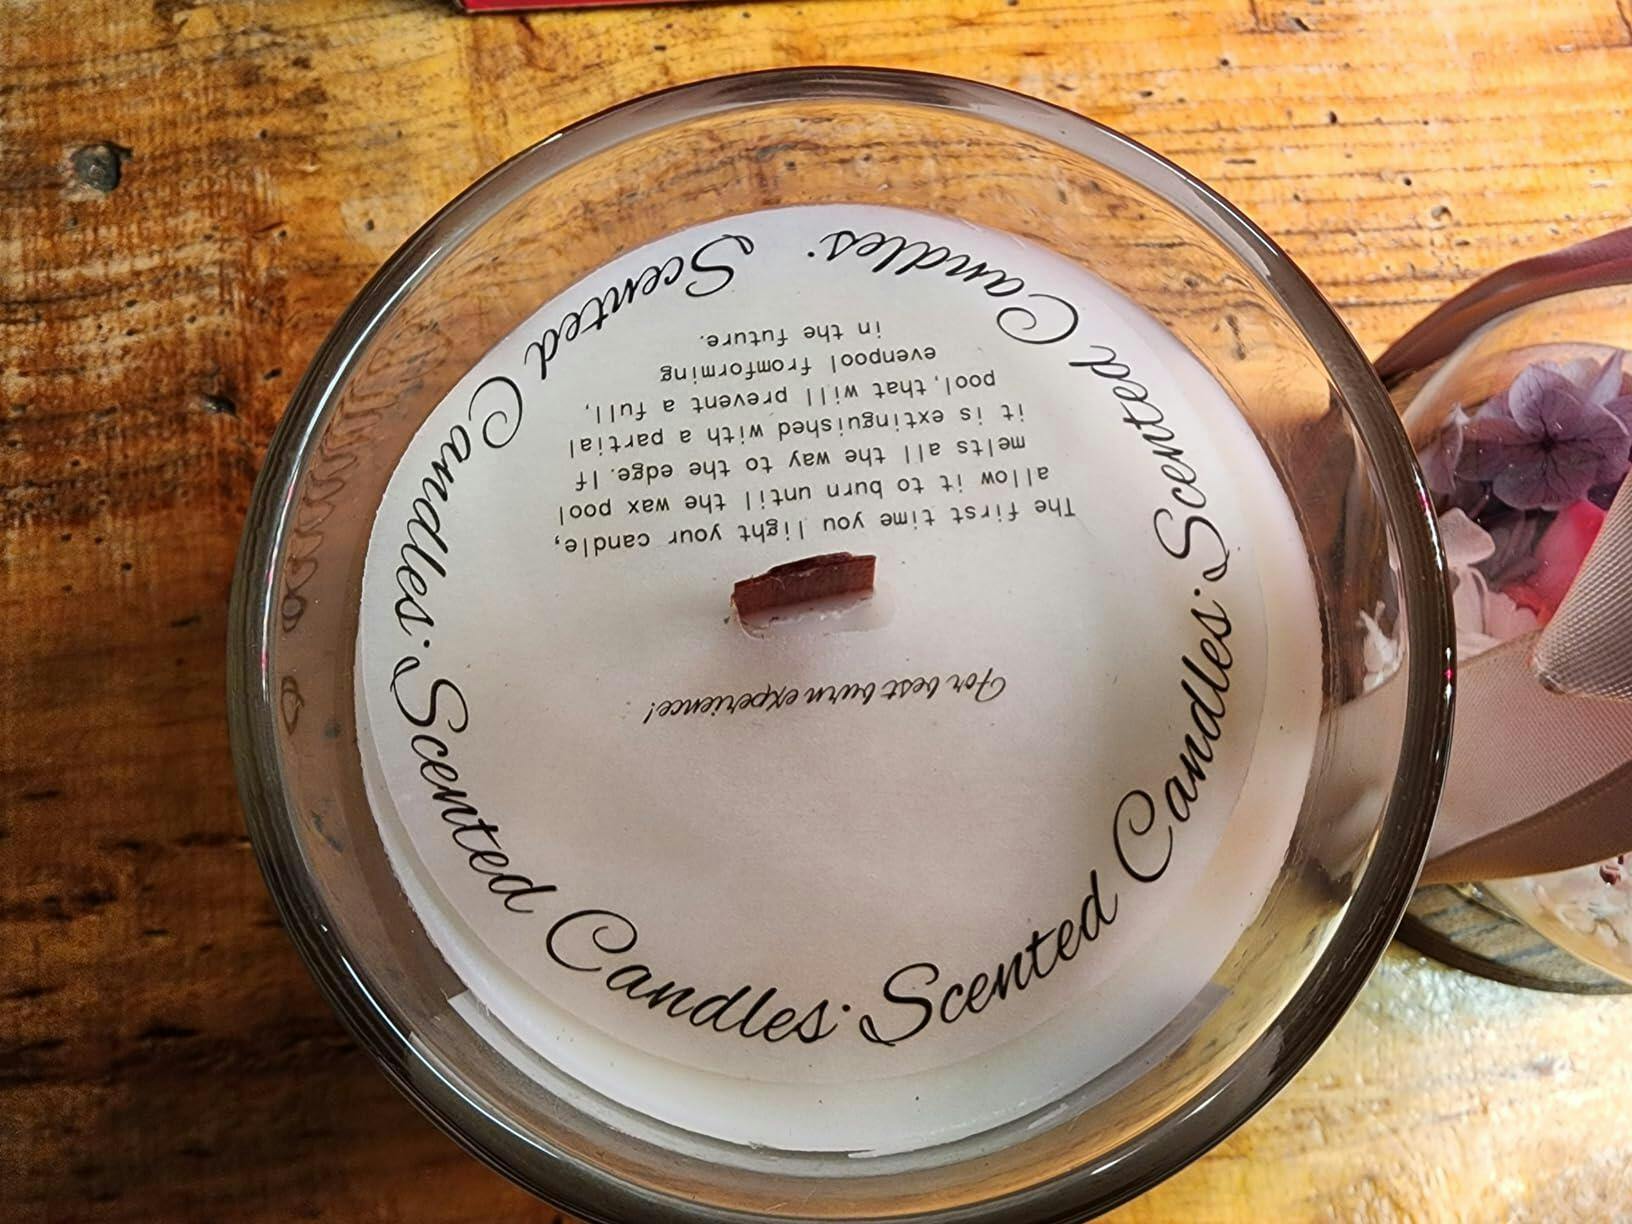 For best burn experience!
The first time you light your candle,
allow it to burn until the wax pool
melts all the way to the edge. If
it is extinguished with a partial
pool, that will prevent a full,
evenpool fromforming
in the future.
Scented Candles· Scented Candles· Scented Candles· Scented Candles·